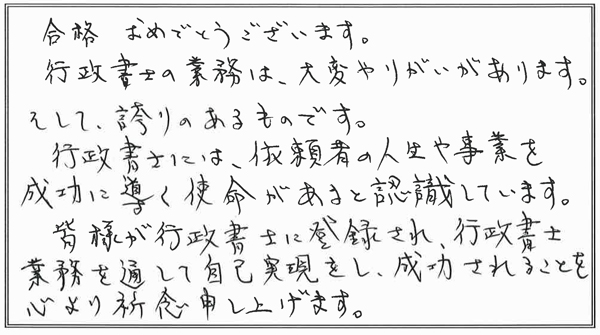 合格 おめでとうございます。
行政書士の業務は、大変やりがいがあります。
そして、誇りのあるものです。
行政書士には、依頼者の人生や事業を
成功に導く使命があると認識しています。
皆様が行政書士に登録され、行政書士
業務を通して自己実現をし、成功されることを
心より祈念申し上げます。